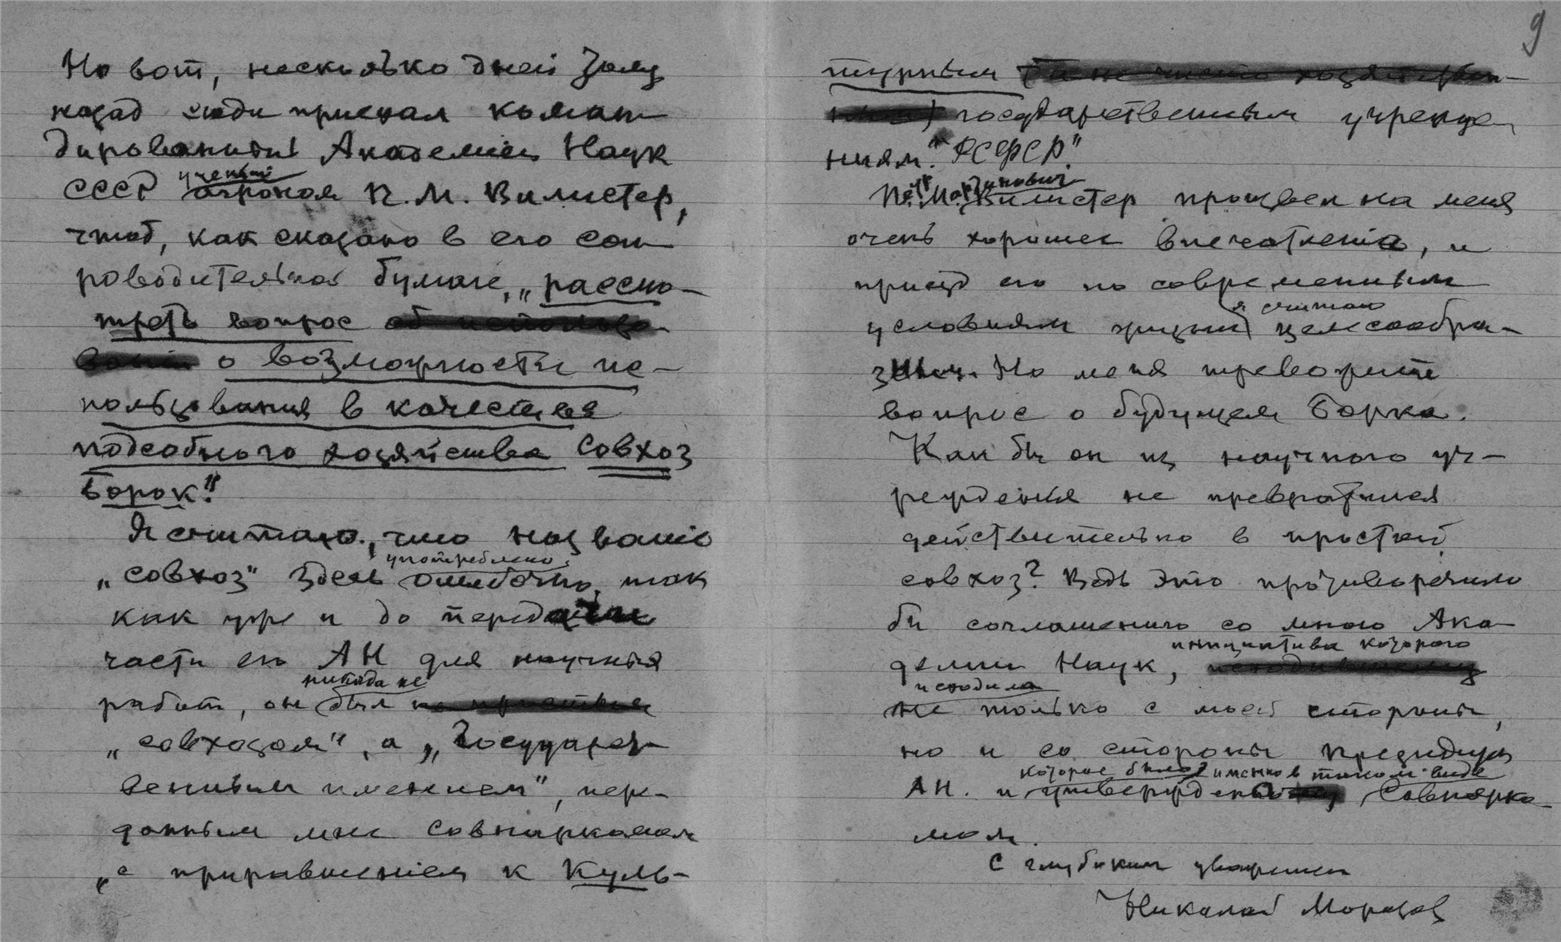 Но вот, несколько дней тому
назад сюда приехал коман-
дированный Академией Наук
СССР ученый агроном П. М. Вилистер,
чтоб, как сказано в его соп-
роводительной бумаге, „рассмо-
треть вопрос об использо-
вании о возможности ис-
пользования в качестве
подсобного хозяйства Совхоз
Борок".
Я считаю, что название
„совхоз" здесь употреблено ошибочно, так
как уже и до передачи
части его АН для научных
работ, он никогда не был не простым
„совхозом", а „Государст-
венным имением", пере-
данным мне Совнаркомом
„с приравнением к Куль-
9
турным (а не чисто хозяйствен-
ным) государственным учрежде-
ниям" РСФСР".
Петр Мартинович Вилистер произвел на меня
очень хорошее впечатление, и
приезд его по современным
условиям жизни я считаю целесообра-
зным. Но меня тревожит
вопрос о будущем Борка.
Как бы он из научного уч-
реждения не превратился
действительно в простой
совхоз? Ведь это противоречило
бы соглашению со мною Ака-
демии Наук, инициатива которого
исходила не только с моей стороны,
но и со стороны Президиума
АН. и которое было именно в таком виде утверждено Совнарко-
мом.
С глубоким уважением
Николай Морозов